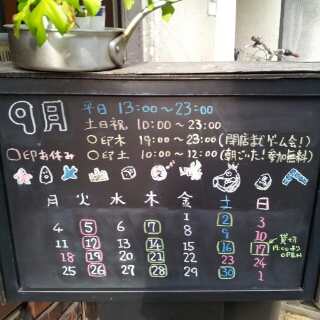 9月 平日 13:00～23:00
土日祝 10:00～23:00
○印木 19:00～23:00(閉店までゲーム会!)
○印お休み ○印土 10:00～12:00(朝ごいた!参加無料)
月 火 水 木 金 土 日
1 2 3
4 5 6 7 8 9 10
11 12 13 14 15 16 17 貸切 19:00より OPEN
18 19 20 21 22 23 24
25 26 27 28 29 30 1